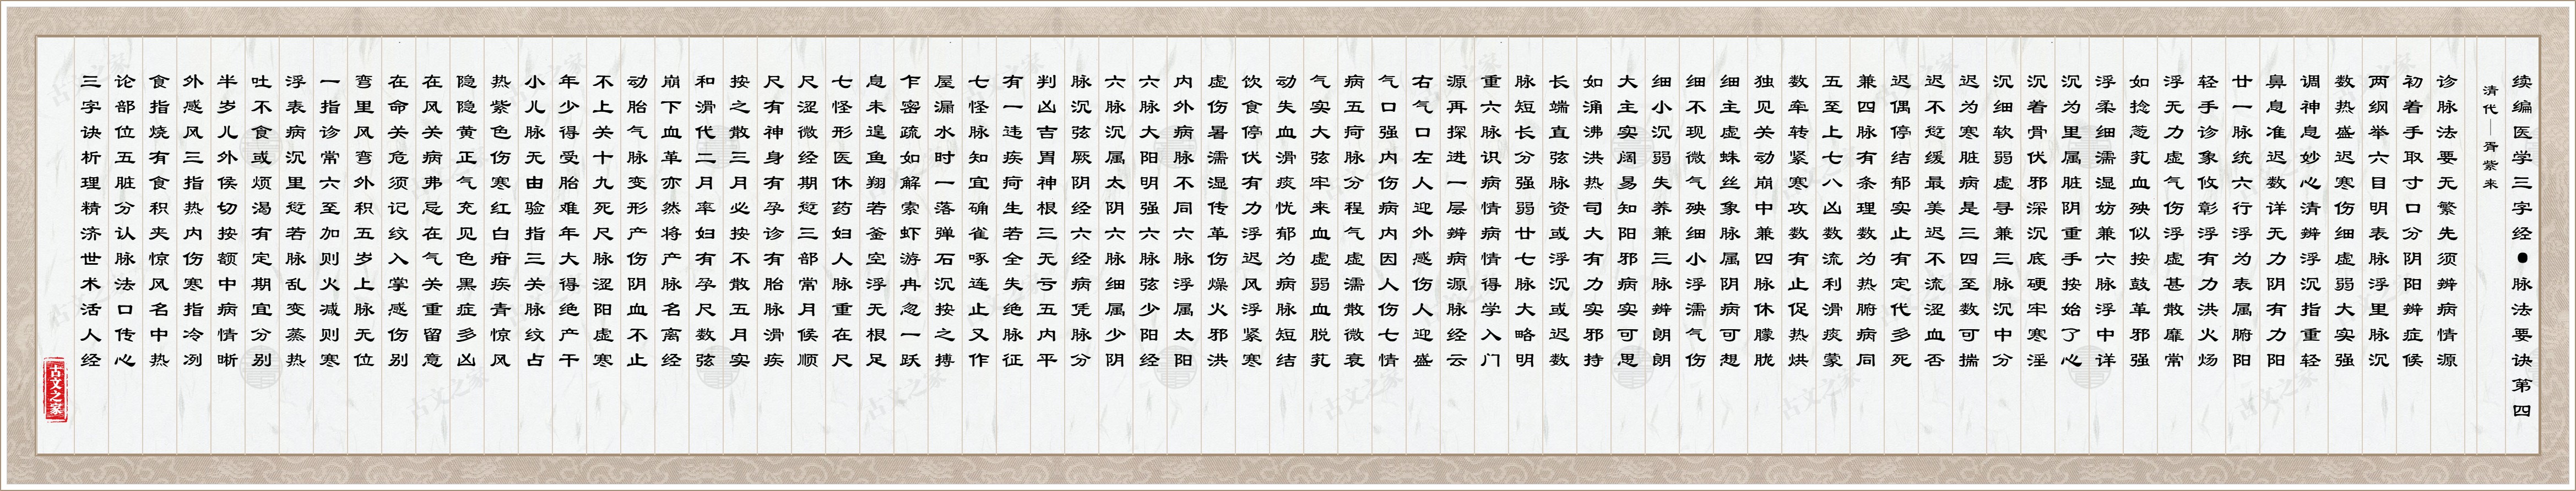 续编医学三字经●脉法要诀第四
清代—胥紫来
诊脉法要无繁先须辨病情源
初着手取寸口分阴阳辨症候
两纲举六目明表脉浮里脉沉
数热盛迟寒伤细虚弱大实强
调神息妙心清辨浮沉指重轻
鼻息准迟数详无力阴有力阳
廿一脉统六行浮为表属腑阳
轻手诊象攸彰浮有力洪火炀
浮无力虚气伤浮虚甚散靡常
如捻葱芤血殃似按鼓革邪强
浮柔细濡湿妨兼六脉浮中详
沉为里属脏阴重手按始了心
沉着骨伏邪深沉底硬牢寒淫
沉细软弱虚寻兼三脉沉中分
迟为寒脏病是三四至数可揣
迟不愆缓最美迟不流涩血否
迟偶停结郁实止有定代多死
兼四脉有条理数为热腑病同
五至上七八凶数流利滑痰蒙
数牵转紧寒攻数有止促热烘
独见关动崩中兼四脉休朦胧
细主虚蛛丝象脉属阴病可想
细不现微气殃细小浮濡气伤
细小沉弱失养兼三脉辨朗朗
大主实阔易知阳邪病实可思
如涌沸洪热司大有力实邪持
长端直弦脉资或浮沉或迟数
脉短长分强弱廿七脉大略明
重六脉识病情病情得学入门
源再探进一层辨病源脉经云
右气口左人迎外感伤人迎盛
气口强内伤病内因人伤七情
病五疴脉分程气虚濡散微衰
气实大弦牢来血虚弱血脱芤
动失血滑痰忧郁为病脉短结
饮食停伏有力浮迟风浮紧寒
虚伤暑濡湿传革伤燥火邪洪
内外病脉不同六脉浮属太阳
六脉大阳明强六脉弦少阳经
六脉沉属太阴六脉细属少阴
脉沉弦厥阴经六经病凭脉分
判凶吉胃神根三无亏五内平
有一违疾疴生若全失绝脉征
七怪脉知宜确雀啄连止又作
屋漏水时一落弹石沉按之搏
乍密疏如解索虾游冉忽一跃
息未遑鱼翔若釜空浮无根足
七怪形医休药妇人脉重在尺
尺涩微经期愆三部常月候顺
尺有神身有孕诊有胎脉滑疾
按之散三月必按不散五月实
和滑代二月率妇有孕尺数弦
崩下血革亦然将产脉名离经
动胎气脉变形产伤阴血不止
不上关十九死尺脉涩阳虚寒
年少得受胎难年大得绝产干
小儿脉无由验指三关脉纹占
热紫色伤寒红白疳疾青惊风
隐隐黄正气充见色黑症多凶
在风关病弗忌在气关重留意
在命关危须记纹入掌感伤别
弯里风弯外积五岁上脉无位
一指诊常六至加则火减则寒
浮表病沉里愆若脉乱变蒸热
吐不食或烦渴有定期宜分别
半岁儿外候切按额中病情晰
外感风三指热内伤寒指冷冽
食指烧有食积夹惊风名中热
论部位五脏分认脉法口传心
三字诀析理精济世术活人经
古文之家